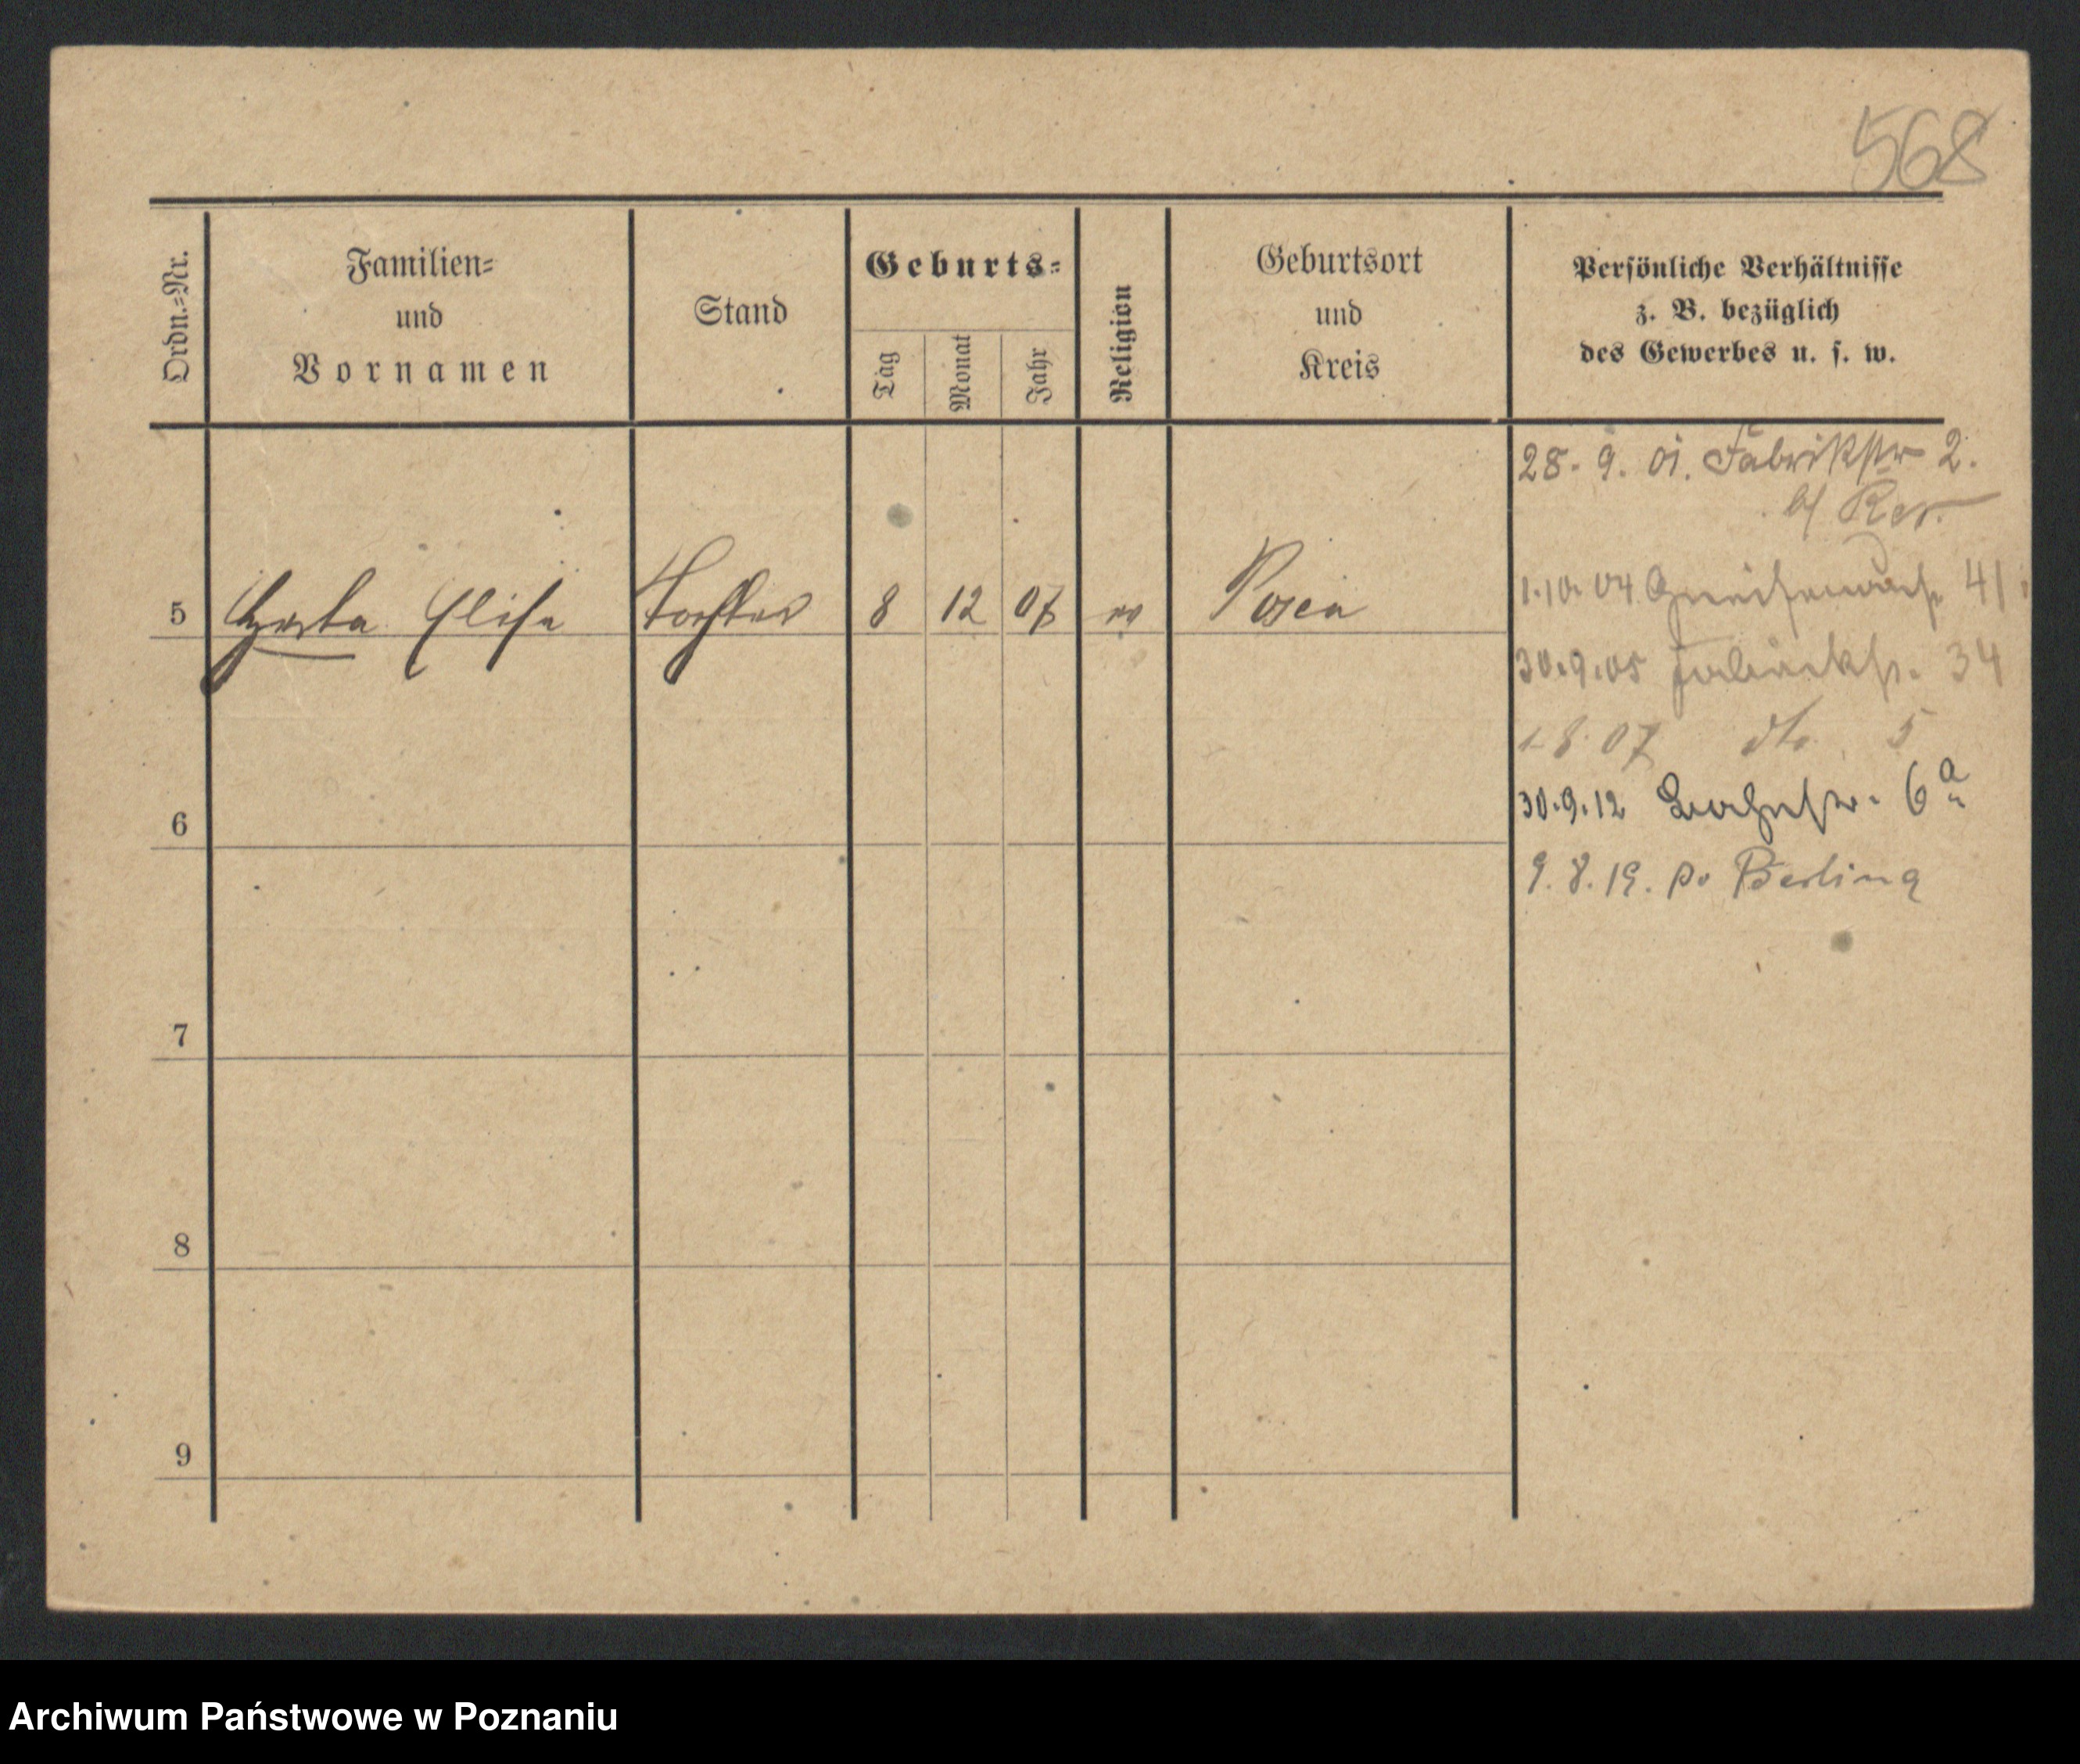 568
Ordn.-Nr.
Familien-
und
Vornamen
Stand
Geburts-
Tag
Monat
Jahr
Religion
Geburtsort
und
Kreis
Persönliche Verhältnisse
z. B. bezüglich
des Gewerbes u. s. w.
28. 9. 01. Fabrikstr 2.
b/
5 Herta Elise Tochter 8 12 07 Posen
1.10.04 Gneisenaustr. 41
30.9.05 Fabrikstr. 34
1 8 07 dto. 5
6
30.9.12 6a
9. 8. 19. Berlin
7
8
9
Archiwum Państwowe w Poznaniu